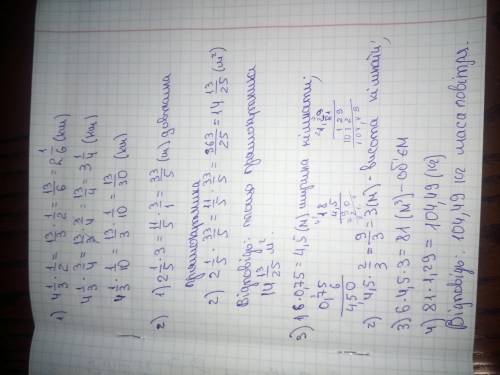 1) 4 1/3 · 1/2 = 13/3 · 1/2 = 13/6 = 2 1/6 (км)
4 1/3 · 3/4 = 13/3 · 3/4 = 13/4 = 3 1/4 (км)
4 1/3 · 1/10 = 13/3 · 1/10 = 13/30 (км)
2) 1) 2 1/5 · 3 = 11/5 · 3/1 = 33/5 (м) довжина
прямокутника
2) 2 1/5 · 33/5 = 11/5 · 33/5 = 363/25 = 14 13/25 (м²)
Відповідь: площа прямокутника
14 13/25 м².
3) 1) 6 · 0,75 = 4,5 (м) ширина кімнати;
0,75
6
4,50
2) 4,5 · 2/3 = 9/3 = 3 (м) - висота кімнати;
3) 6 · 4,5 · 3 = 81 (м³) - об'єм
4) 81 · 1,29 = 104,49 (кг)
1,29
81
129
1032
104,49
Відповідь: 104,49 кг маса повітря.